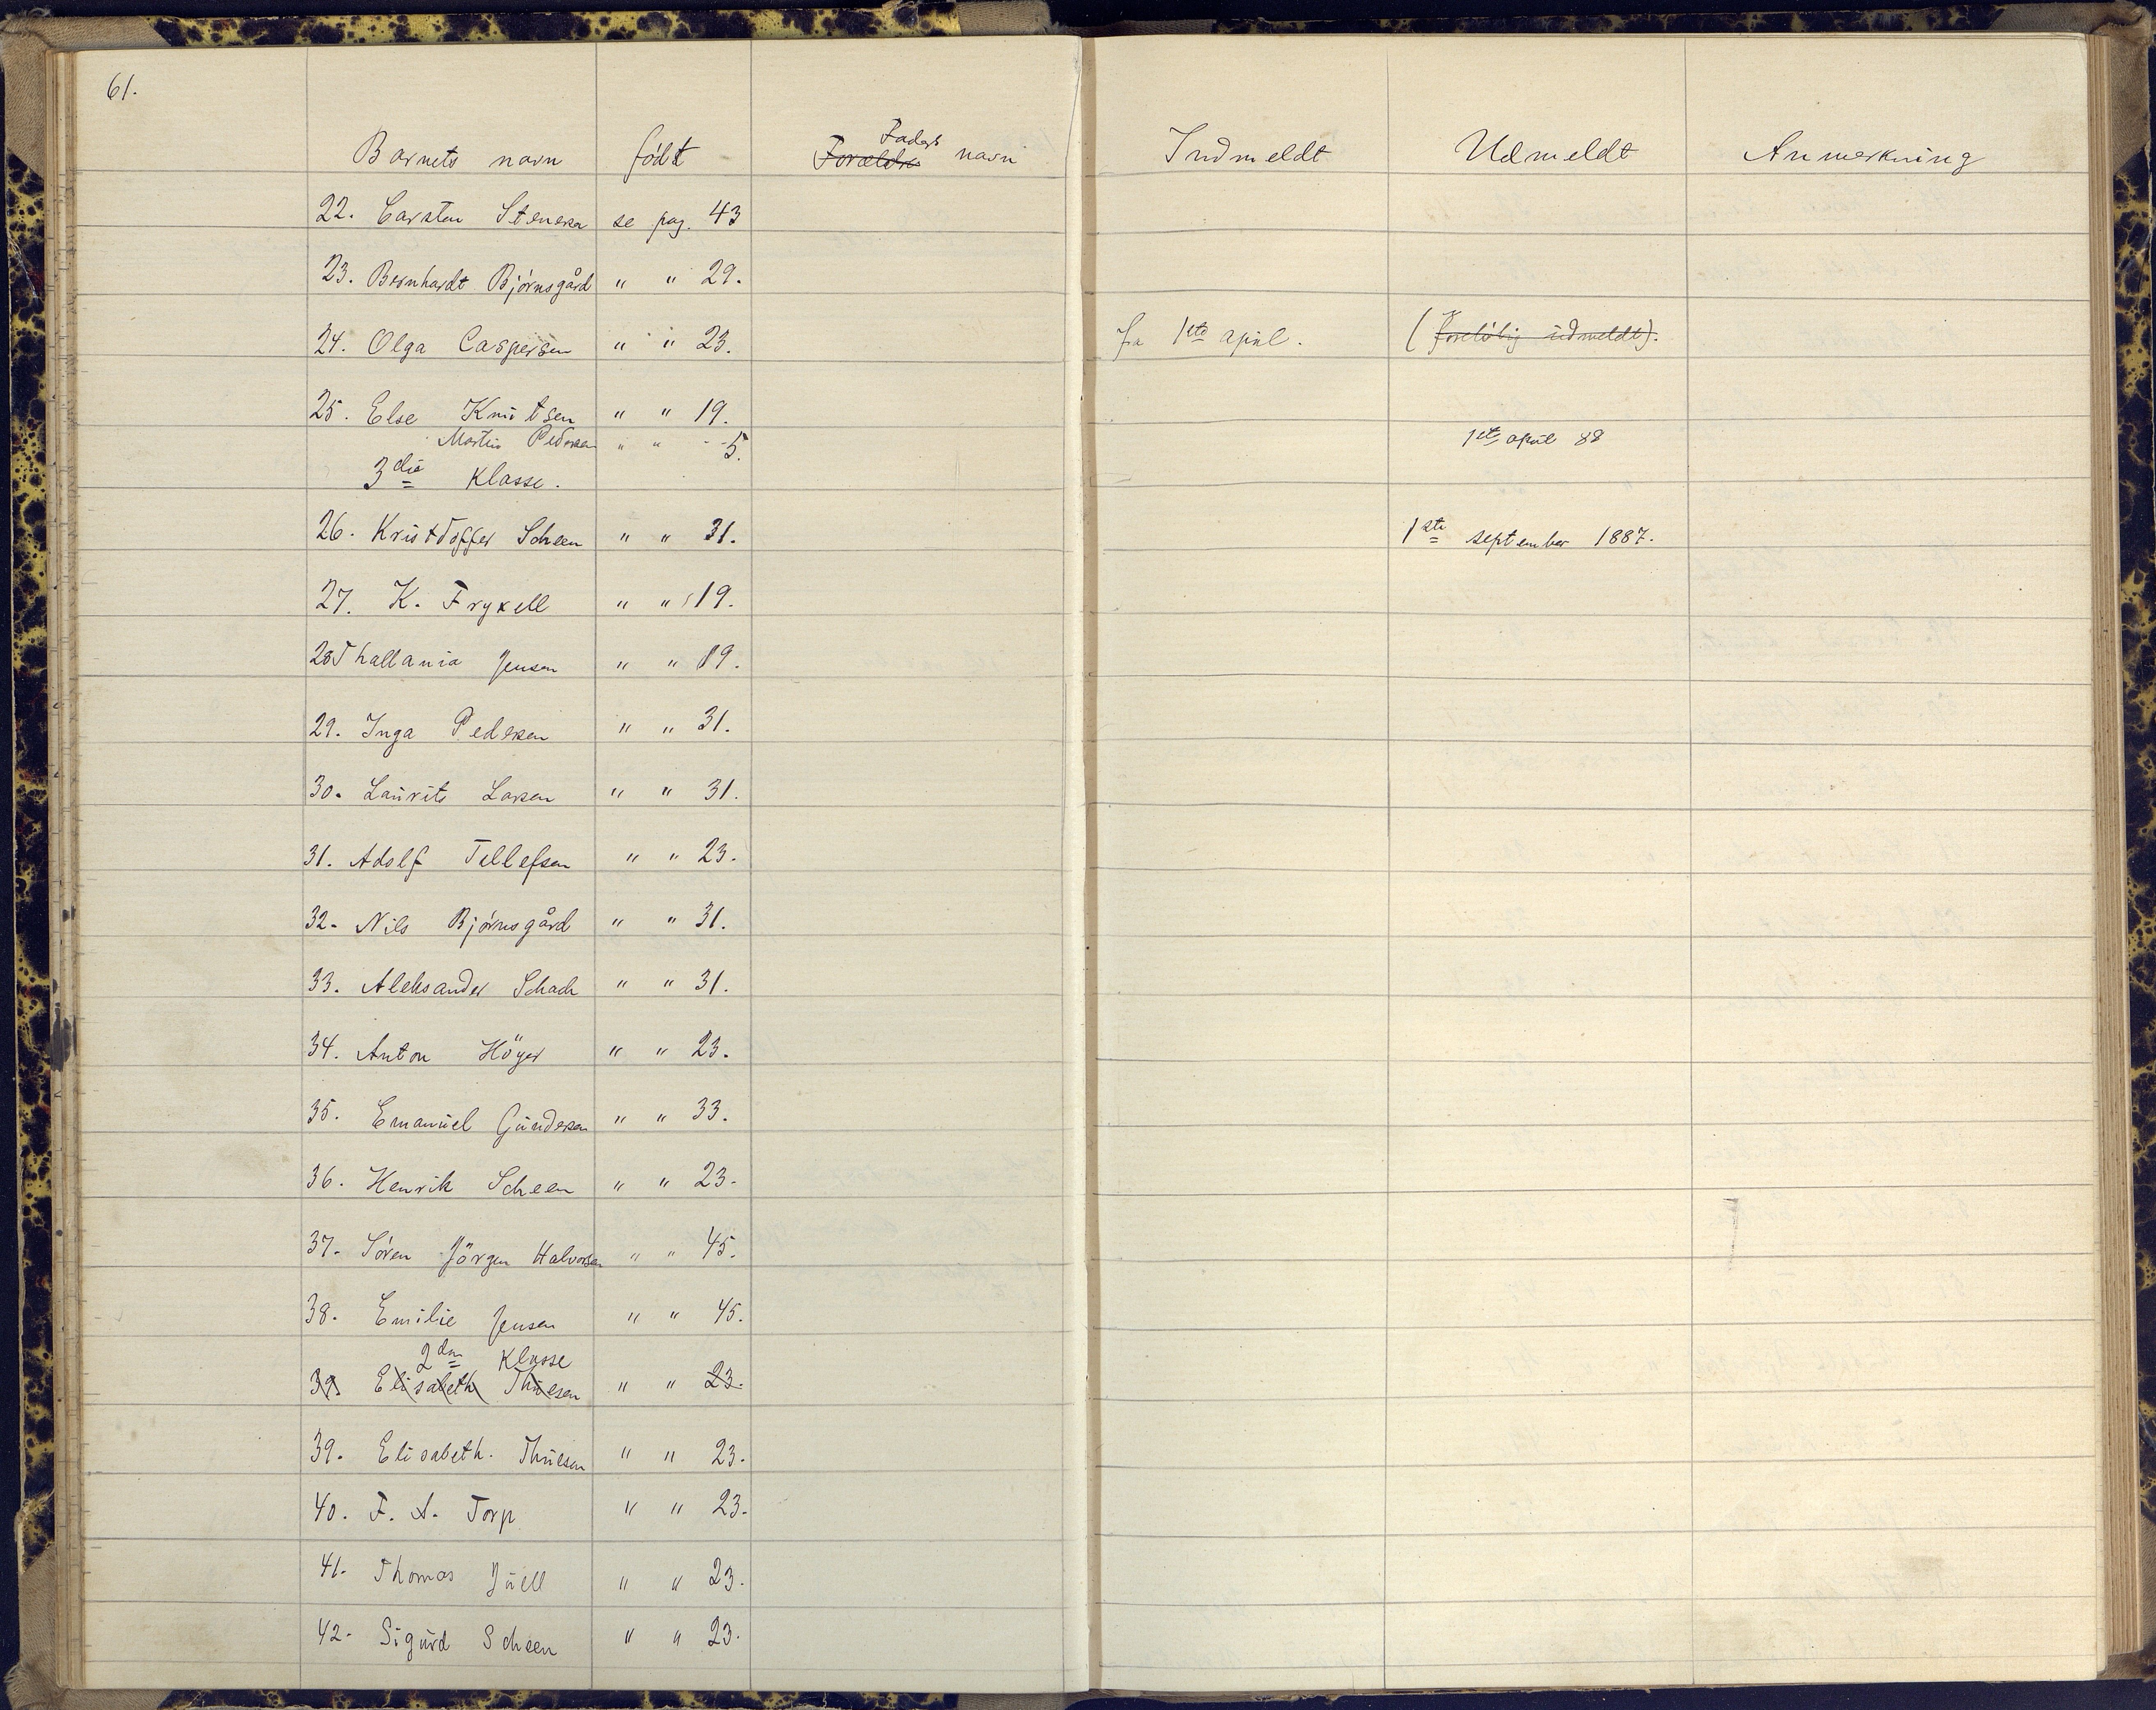 61.
Barnets navn födt Faders ~~Forældre~~ navn Indmeldt Udmeldt Anmerkning
22. Carsten Stenersen se pag. 43
23. Bernhardt Björnsgård " " 29.
24. Olga Caspersen " " 23. fra 1ste april. (~~foreløbig udmeldt~~).
25. Else Knutsen " " 19.
Martin Pedersen " " -- 5. 1ste april 88
3die Klasse.
26. Kristoffer Scheen " " 31. 1ste september 1887.
27. K. Fryxell " " 19.
28 Thallania Jensen " " 19.
29. Inga Pedersen " " 31.
30. Laurits Larsen " " 31.
31. Adolf Tellefsen " " 23.
32. Nils Björnsgård " " 31.
33. Aleksander Schack " " 31.
34. Anton Höyer " " 23.
35. Emanuel Gundersen " " 33.
36. Henrik Scheen " " 23.
37. Sören Jörgen Halvorsen " " 45.
38. Emilie Jensen " " 45.
2den Klasse
~~39 Elisabeth Thuesen~~ " " ~~23.~~
39. Elisabeth. Thuesen " " 23.
40. F. A. Torp " " 23.
41. Thomas Juell " " 23.
42. Sigurd Scheen " " 23.